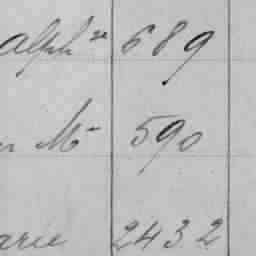 alph ne 689
Mn 590
arie 2432